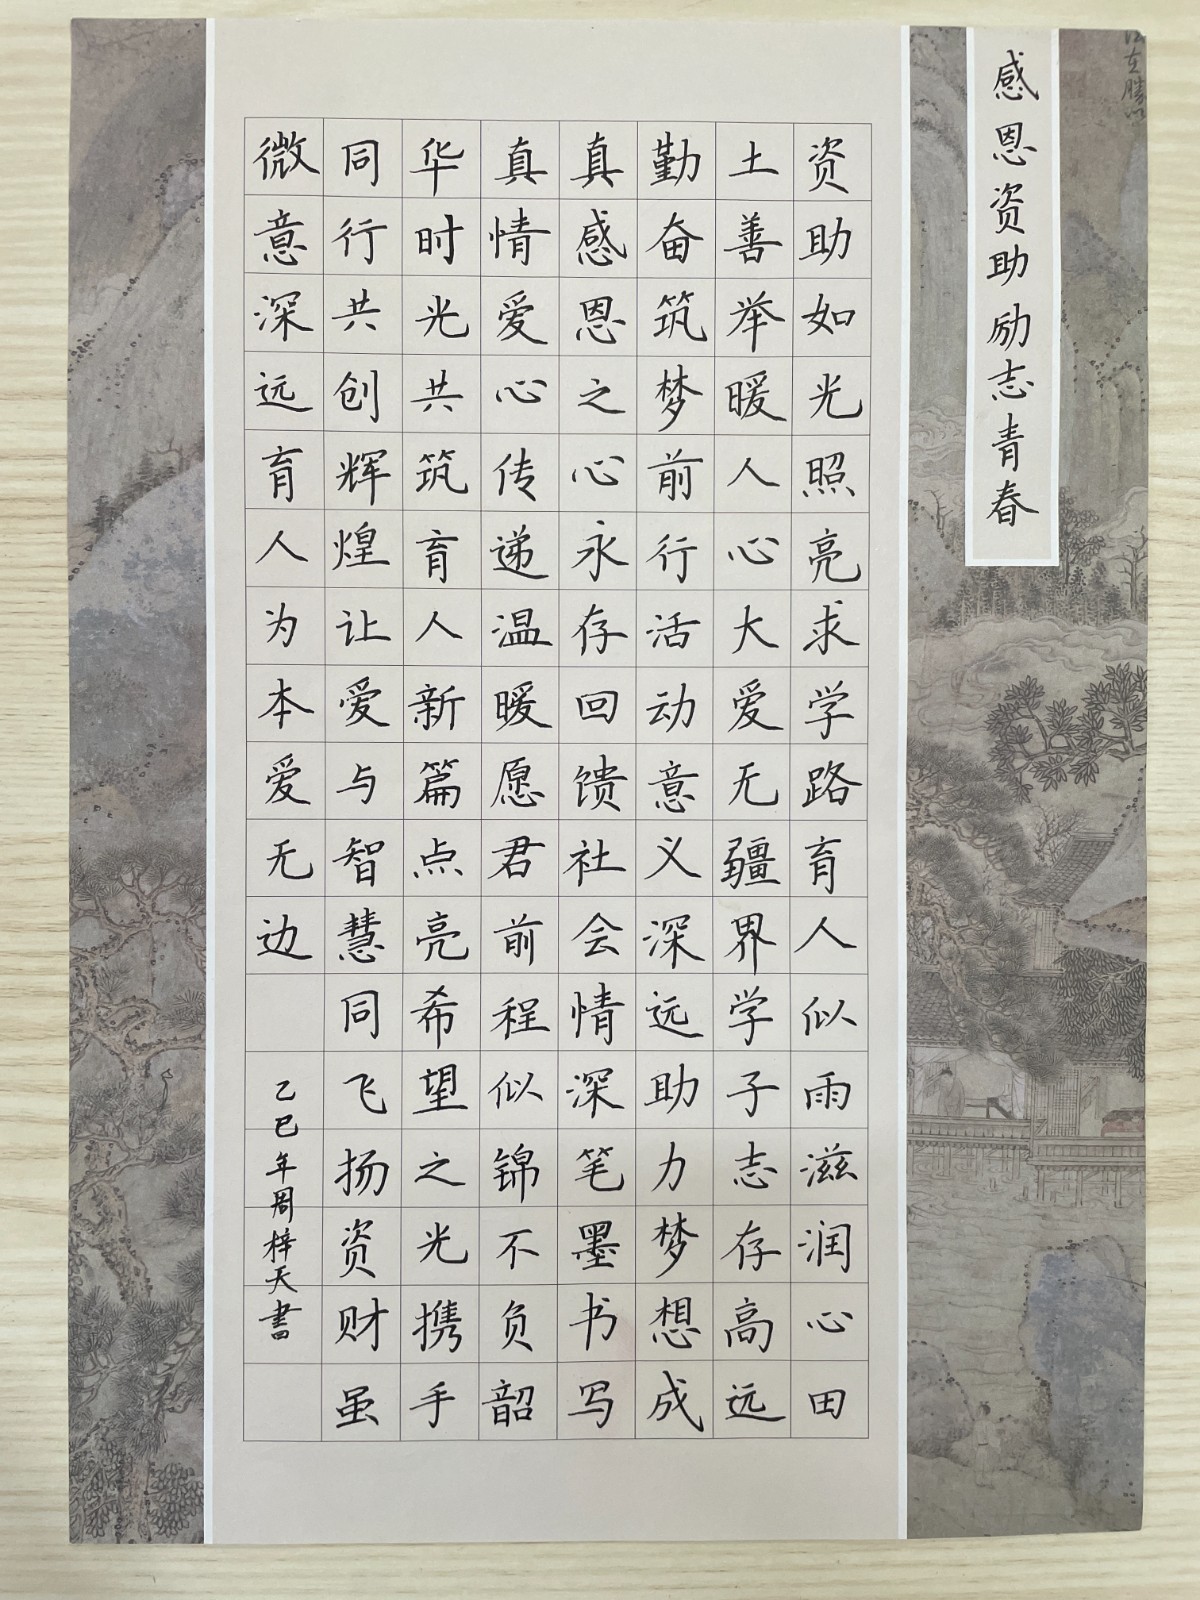 感恩资助励志青春
资助如光照亮求学路育人似雨滋润心田
土善举暖人心大爱无疆界学子志存高远
勤奋筑梦前行活动意义深远助力梦想成
真感恩之心永存回馈社会情深笔墨书写
真情爱心传递温暖愿君前程似锦不负韶
华时光共筑育人新篇点亮希望之光携手
同行共创辉煌让爱与智慧同飞扬资财虽
微意深远育人为本爱无边
乙巳年周梓天书